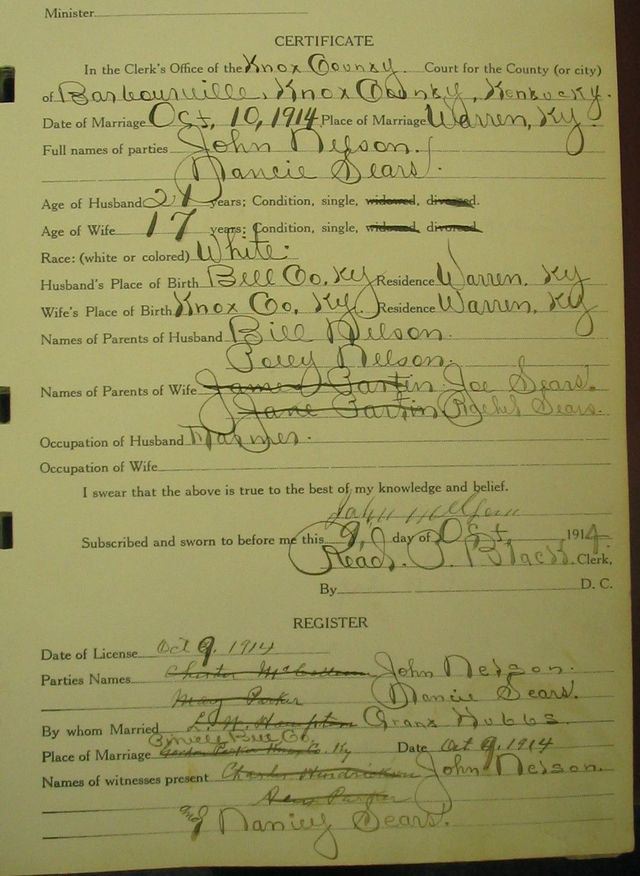 Minister
CERTIFICATE
In the Clerk's Office of the Knox County Court for the County (or city)
of Barbourville, Knox County, Kentucky.
Date of Marriage Oct, 10, 1914 Place of Marriage Warren, Ky.
Full names of parties John Nelson.
Nancie Sears.
Age of Husband 21 years; Condition, single, widowed, divorced.
Age of Wife 17 years; Condition, single, widowed, divorced
Race: (white or colored) White.
Husband's Place of Birth Bell Co, Ky Residence Warren, Ky
Wife's Place of Birth Knox Co, Ky, Residence Warren, Ky
Names of Parents of Husband Bill Nelson.
Nelson.
Names of Parents of Wife James Partin Joe Sears.
Jane Partin Sears.
Occupation of Husband
Occupation of Wife
I swear that the above is true to the best of my knowledge and belief.
John
Subscribed and sworn to before me this 9, day of Oct, 1914.
Read. P. Black. Clerk,
By D. C.
REGISTER
Date of License Oct 9, 1914
Parties Names John Nelson.
May Parker Nancie Sears.
By whom Married Grant Hubbs.
Co.
Place of Marriage Knox Co. Ky Date Oct 9, 1914
Names of witnesses present Charles Hendrickson John Nelson.
Parker
and Sears.